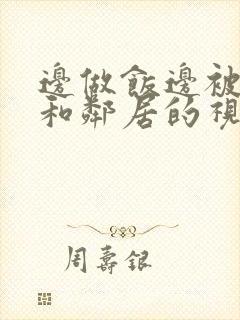 邊做飯邊被
和鄰居的視
周壽銀